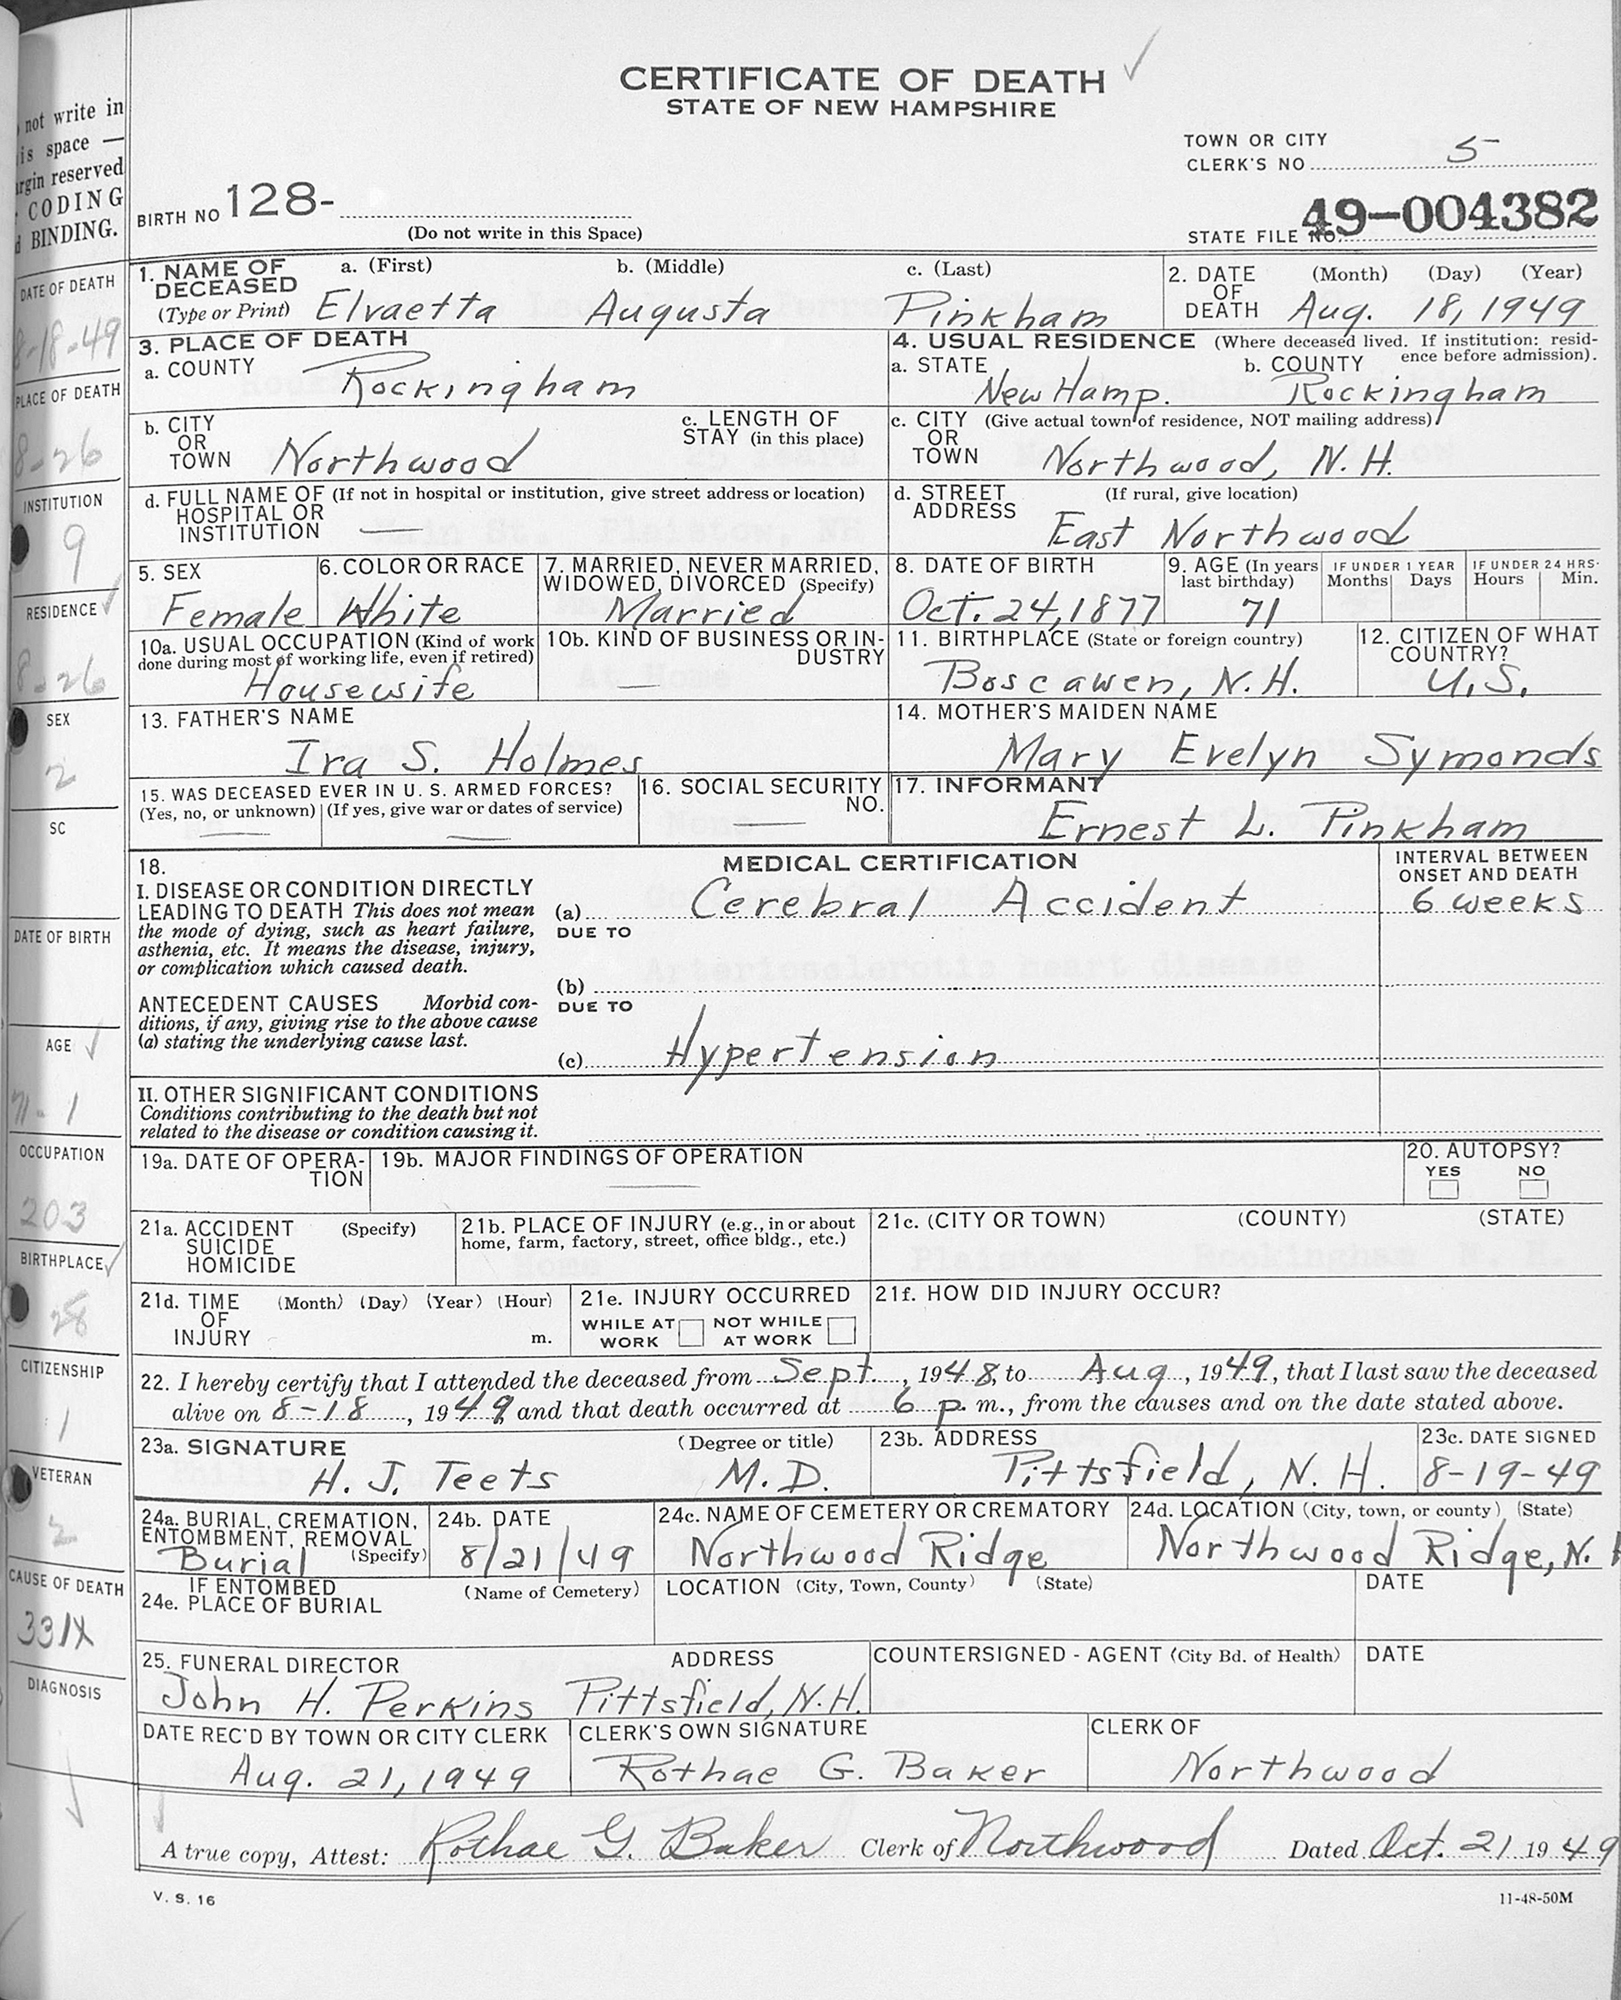 CERTIFICATE OF DEATH
STATE OF NEW HAMPSHIRE
TOWN OR CITY
CLERK'S NO. 5
not write in
is space —
rgin reserved
CODING
BINDING.
BIRTH NO 128-
(Do not write in this Space)
49-004382
STATE FILE NO.
1. NAME OF DECEASED (Type or Print) a. (First) b. (Middle) c. (Last)
Elvaetta Augusta Pinkham
2. DATE OF DEATH (Month) (Day) (Year)
Aug. 18, 1949
3. PLACE OF DEATH
a. COUNTY Rockingham
4. USUAL RESIDENCE (Where deceased lived. If institution: resid-
ence before admission).
a. STATE New Hamp. b. COUNTY Rockingham
b. CITY OR TOWN Northwood
c. LENGTH OF STAY (in this place)
c. CITY OR TOWN (Give actual town of residence, NOT mailing address)
Northwood, N.H.
d. FULL NAME OF HOSPITAL OR INSTITUTION (If not in hospital or institution, give street address or location)
—
d. STREET ADDRESS (If rural, give location)
East Northwood
5. SEX Female
6. COLOR OR RACE White
7. MARRIED, NEVER MARRIED, WIDOWED, DIVORCED (Specify)
Married
8. DATE OF BIRTH Oct. 24, 1877
9. AGE (In years last birthday) 71
IF UNDER 1 YEAR Months Days
IF UNDER 24 HRS. Hours Min.
10a. USUAL OCCUPATION (Kind of work done during most of working life, even if retired)
Housewife
10b. KIND OF BUSINESS OR INDUSTRY
—
11. BIRTHPLACE (State or foreign country)
Boscawen, N.H.
12. CITIZEN OF WHAT COUNTRY?
U.S.
13. FATHER'S NAME
Ira S. Holmes
14. MOTHER'S MAIDEN NAME
Mary Evelyn Symonds
15. WAS DECEASED EVER IN U. S. ARMED FORCES?
(Yes, no, or unknown) (If yes, give war or dates of service)
— —
16. SOCIAL SECURITY NO.
—
17. INFORMANT
Ernest L. Pinkham
18. MEDICAL CERTIFICATION
INTERVAL BETWEEN ONSET AND DEATH
I. DISEASE OR CONDITION DIRECTLY
LEADING TO DEATH This does not mean
the mode of dying, such as heart failure,
asthenia, etc. It means the disease, injury,
or complication which caused death.
(a) Cerebral Accident 6 weeks
DUE TO
(b)
ANTECEDENT CAUSES Morbid con-
ditions, if any, giving rise to the above cause
(a) stating the underlying cause last.
DUE TO
(c) Hypertension
II. OTHER SIGNIFICANT CONDITIONS
Conditions contributing to the death but not
related to the disease or condition causing it.
19a. DATE OF OPERATION
19b. MAJOR FINDINGS OF OPERATION
—
20. AUTOPSY?
YES NO
21a. ACCIDENT SUICIDE HOMICIDE (Specify)
21b. PLACE OF INJURY (e.g., in or about
home, farm, factory, street, office bldg., etc.)
21c. (CITY OR TOWN) (COUNTY) (STATE)
21d. TIME OF INJURY (Month) (Day) (Year) (Hour) m.
21e. INJURY OCCURRED
WHILE AT WORK NOT WHILE AT WORK
21f. HOW DID INJURY OCCUR?
22. I hereby certify that I attended the deceased from Sept., 1948, to Aug, 1949, that I last saw the deceased
alive on 8-18, 1949, and that death occurred at 6 p. m., from the causes and on the date stated above.
23a. SIGNATURE (Degree or title)
H. J. Teets M.D.
23b. ADDRESS
Pittsfield, N.H.
23c. DATE SIGNED
8-19-49
24a. BURIAL, CREMATION, ENTOMBMENT, REMOVAL (Specify)
Burial
24b. DATE
8/21/49
24c. NAME OF CEMETERY OR CREMATORY
Northwood Ridge
24d. LOCATION (City, town, or county) (State)
Northwood Ridge, N.
24e. IF ENTOMBED PLACE OF BURIAL (Name of Cemetery)
LOCATION (City, Town, County) (State)
DATE
25. FUNERAL DIRECTOR ADDRESS
John H. Perkins Pittsfield, N.H.
COUNTERSIGNED - AGENT (City Bd. of Health)
DATE
DATE REC'D BY TOWN OR CITY CLERK
Aug. 21, 1949
CLERK'S OWN SIGNATURE
Rothae G. Baker
CLERK OF
Northwood
A true copy, Attest: Rothae G. Baker Clerk of Northwood Dated Oct. 21 1949
V. S. 16
11-48-50M
DATE OF DEATH
8-18-49
PLACE OF DEATH
8-26
INSTITUTION
9
RESIDENCE
8-26
SEX
2
SC
DATE OF BIRTH
AGE
71-1
OCCUPATION
203
BIRTHPLACE
28
CITIZENSHIP
1
VETERAN
2
CAUSE OF DEATH
331X
DIAGNOSIS